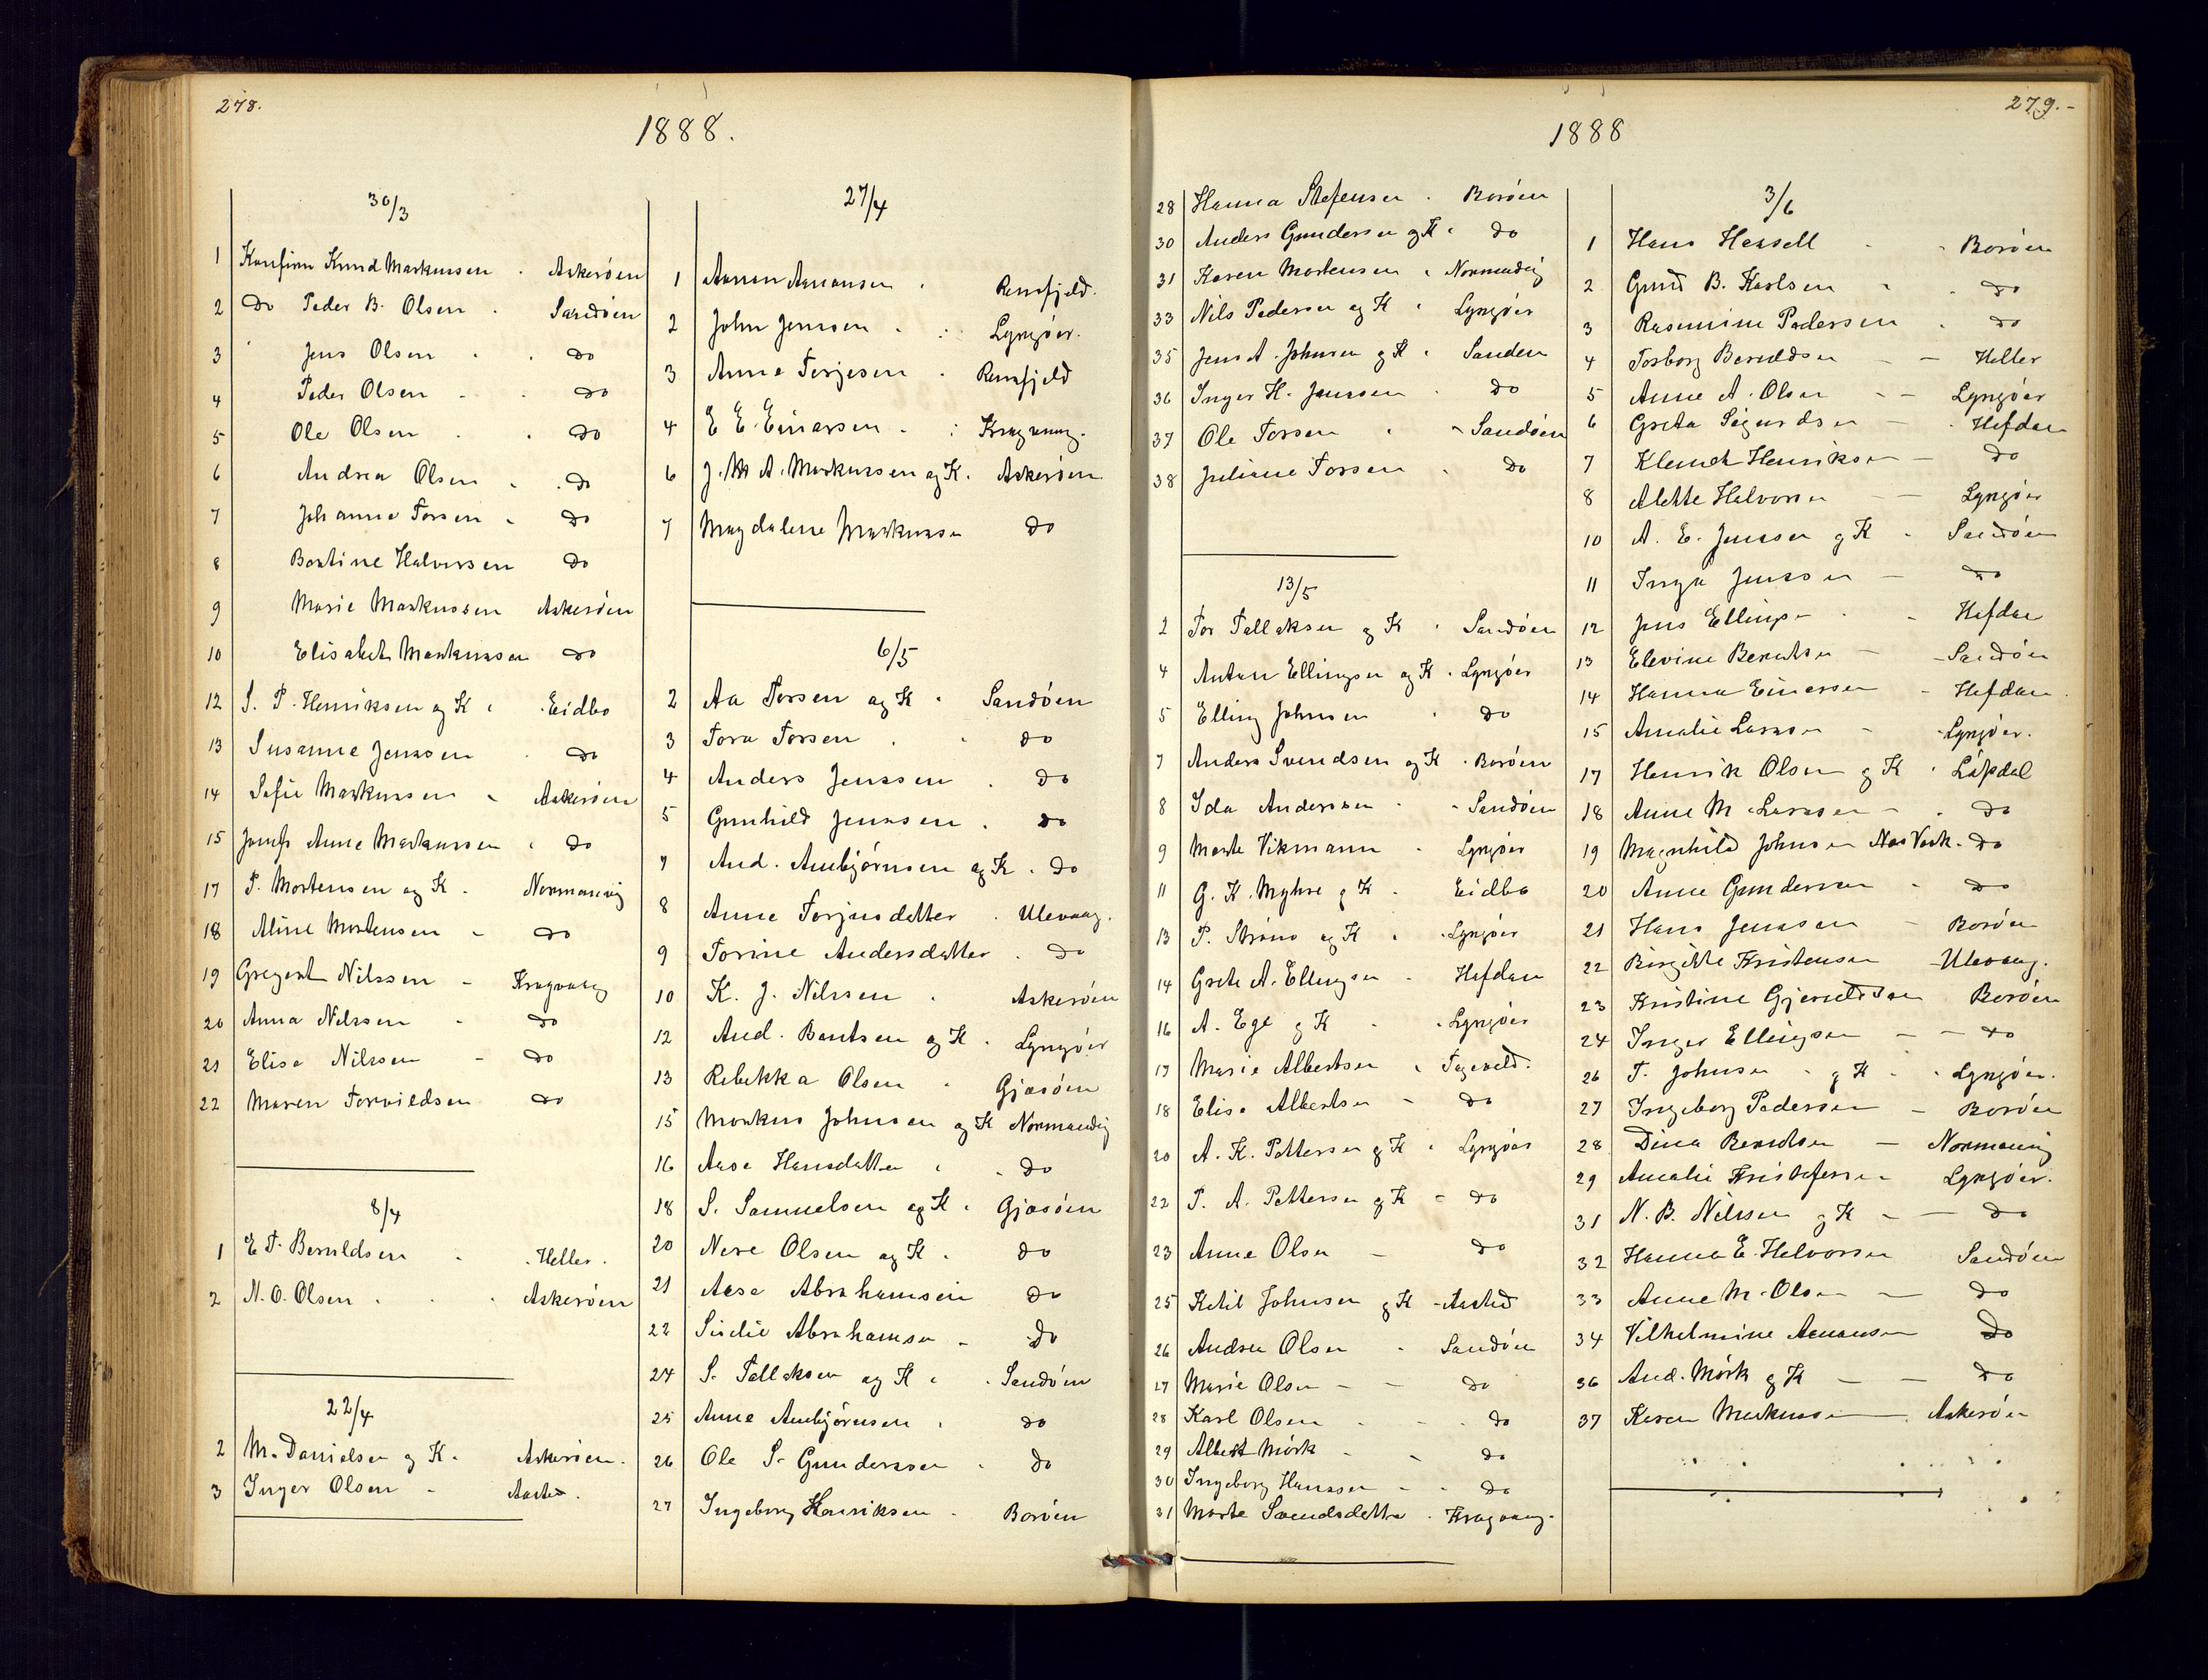 278.
1888.
30/3
1 Konfirm Knud Markussen . Askerøen
2 Do Peder B. Olsen . Sandøen
3 Jens Olsen . . do
4 Peder Olsen . . do
5 Ole Olsen . . do
6 Andrea Olsen . . do
7 Johanne Torsen . do
8 Bertine Halvorsen do
9 Marie Markussen Askerøen
10 Elisabet Markussen do
12 S. P. Henriksen og K . Eidbo
13 Susanne Jenssen . do
14 Sofie Markussen - Askerøen
15 Anne Markussen . do
17 P. Mortensen og K . Normanvig
18 Aline Mortensen - do
19 Gregert Nilssen - Kragvaag
20 Anna Nilssen - do
21 Elise Nilssen - do
22 Maren Torvildsen do
8/4
1 E T. Beruldsen . . Heller.
2 N. O. Olsen . . . Askerøen
22/4
2 M. Danielsen og K . Askerøen.
3 Inger Olsen - Aasted.
27/4
1 Aanon Aanonsen . Rensfjeld.
2 John Jenssen . . Lyngøer.
3 Anne Terjesen . Rensfjeld
4 E E. Einersen . : Kragvaag.
6 J. M A. Markussen og K. Askerøen
7 Magdalene Markussen do
6/5
2 Aa Torsen og K . Sandøen
3 Tora Torsen . . do
4 Anders Jenssen . do
5 Gunhild Jenssen . do
7 And. Anbjørnsen og K . do
8 Anne Torjusdatter . Ulevaag.
9 Torine Andersdatter . do
10 K. J. Nilssen . Askerøen
12 And. Bentsen og K . Lyngøer
13 Rebekka Olsen . Gjøsøen
15 Markus Johnsen og K Normandvig
16 Aase Hansdatter . . do
18 S. Samuelsen og K . Gjøsøen
20 Nere Olsen og K . do
21 Aase Abrahamsen do
22 Abrahamsen - do
24 S. Tallaksen og K . . Sandøen
25 Anne Anbjørnsen . do
26 Ole S. Gunderssen . do
27 Ingeborg Henriksen . Borøen
279.-
1888
28 Hanna Stefensen . Borøen
30 Anders Gundersen og K . do
31 Karen Mortensen . Normandvig
33 Nils Pedersen og K . Lyngøer
35 Jens A. Johnsen og K . Sanden
36 Inger H. Jenssen . do
37 Ole Torsen . - Sandøen
38 Juliane Torsen . do
13/5
2 Tor Tallaksen og K . Sandøen
4 Antun Ellingsen og K . Lyngøer
5 Elling Johnsen . do
7 Anders Svendsen og K . Borøen
8 Ida Andersen . - Sandøen
9 Marte Vikmann . Lyngøer
11 G. K. Myhre og K . Eidbo
13 P. Strøno og K . . Lyngøer
14 Grete A. Ellingsen . Hefdan
16 A. Ege og K . . Lyngøer
17 Marie Albertsen .
18 Elise Albertsen - do
20 A. K. Pettersen og K . Lyngøer
22 P. A. Pettersen og K - do
23 Anne Olsen - do
25 Ketil Johnsen og K - Aasted
26 Andrea Olsen . Sandøen
27 Marie Olsen - - do
28 Karl Olsen . . . do
29 Albert Mørk . - do
30 Ingeborg Hanssen - - do
31 Marte Svendsdatter . Kragvaag.
3/6
1 Hans Hessell . . Borøen
2 Gurid B. Karlsen . . do
3 Rasmine Pedersen . do
4 Torborg Beruldsen - - Heller
5 Anne A. Olsen - - Lyngøer
6 Greta Sigurdsen - . Hefdan
7 Klemet Henriksen - do
8 Alette Halvorsen - - Lyngøer
10 A. E. Jenssen og K . Sandøen
11 Inga Jenssen - do
12 Jens Ellingsen . . Hefdan
13 Elevine Berntsen - - Sandøen
14 Hanna Einersen . Hefdan.
15 Amalie Larssen - - Lyngøer.
17 Henrik Olsen og K . Løfsdal
18 Anne M. Larssen - . do
19 Magnhild Johnsen Næs Værk. do
20 Anne Gundersen . do
21 Hans Jenssen - Borøen
22 Birgitte Kristensen - Ulevaag.
23 Kristine Gjeruldsen Borøen
24 Inger Ellingsen - - do
26 T. Johnsen . og K . . Lyngøer.
27 Ingeborg Pedersen - Borøen
28 Dina Berntsen - Normanvig
29 Amalie Kristofersen Lyngøer.
31 N. B. Nilssen og K - - do
32 Hanna E. Halvorsen Sandøen
33 Anne M. Olsen - do
34 Vilhelmine Aanonsen do
36 And. Mørk og K - - do
37 Karen Markussen - . Askerøen